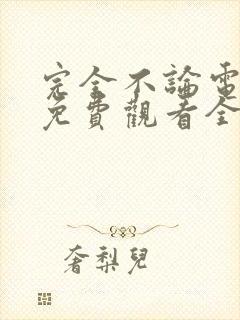 完全不論電
免費觀看全
奢梨兒